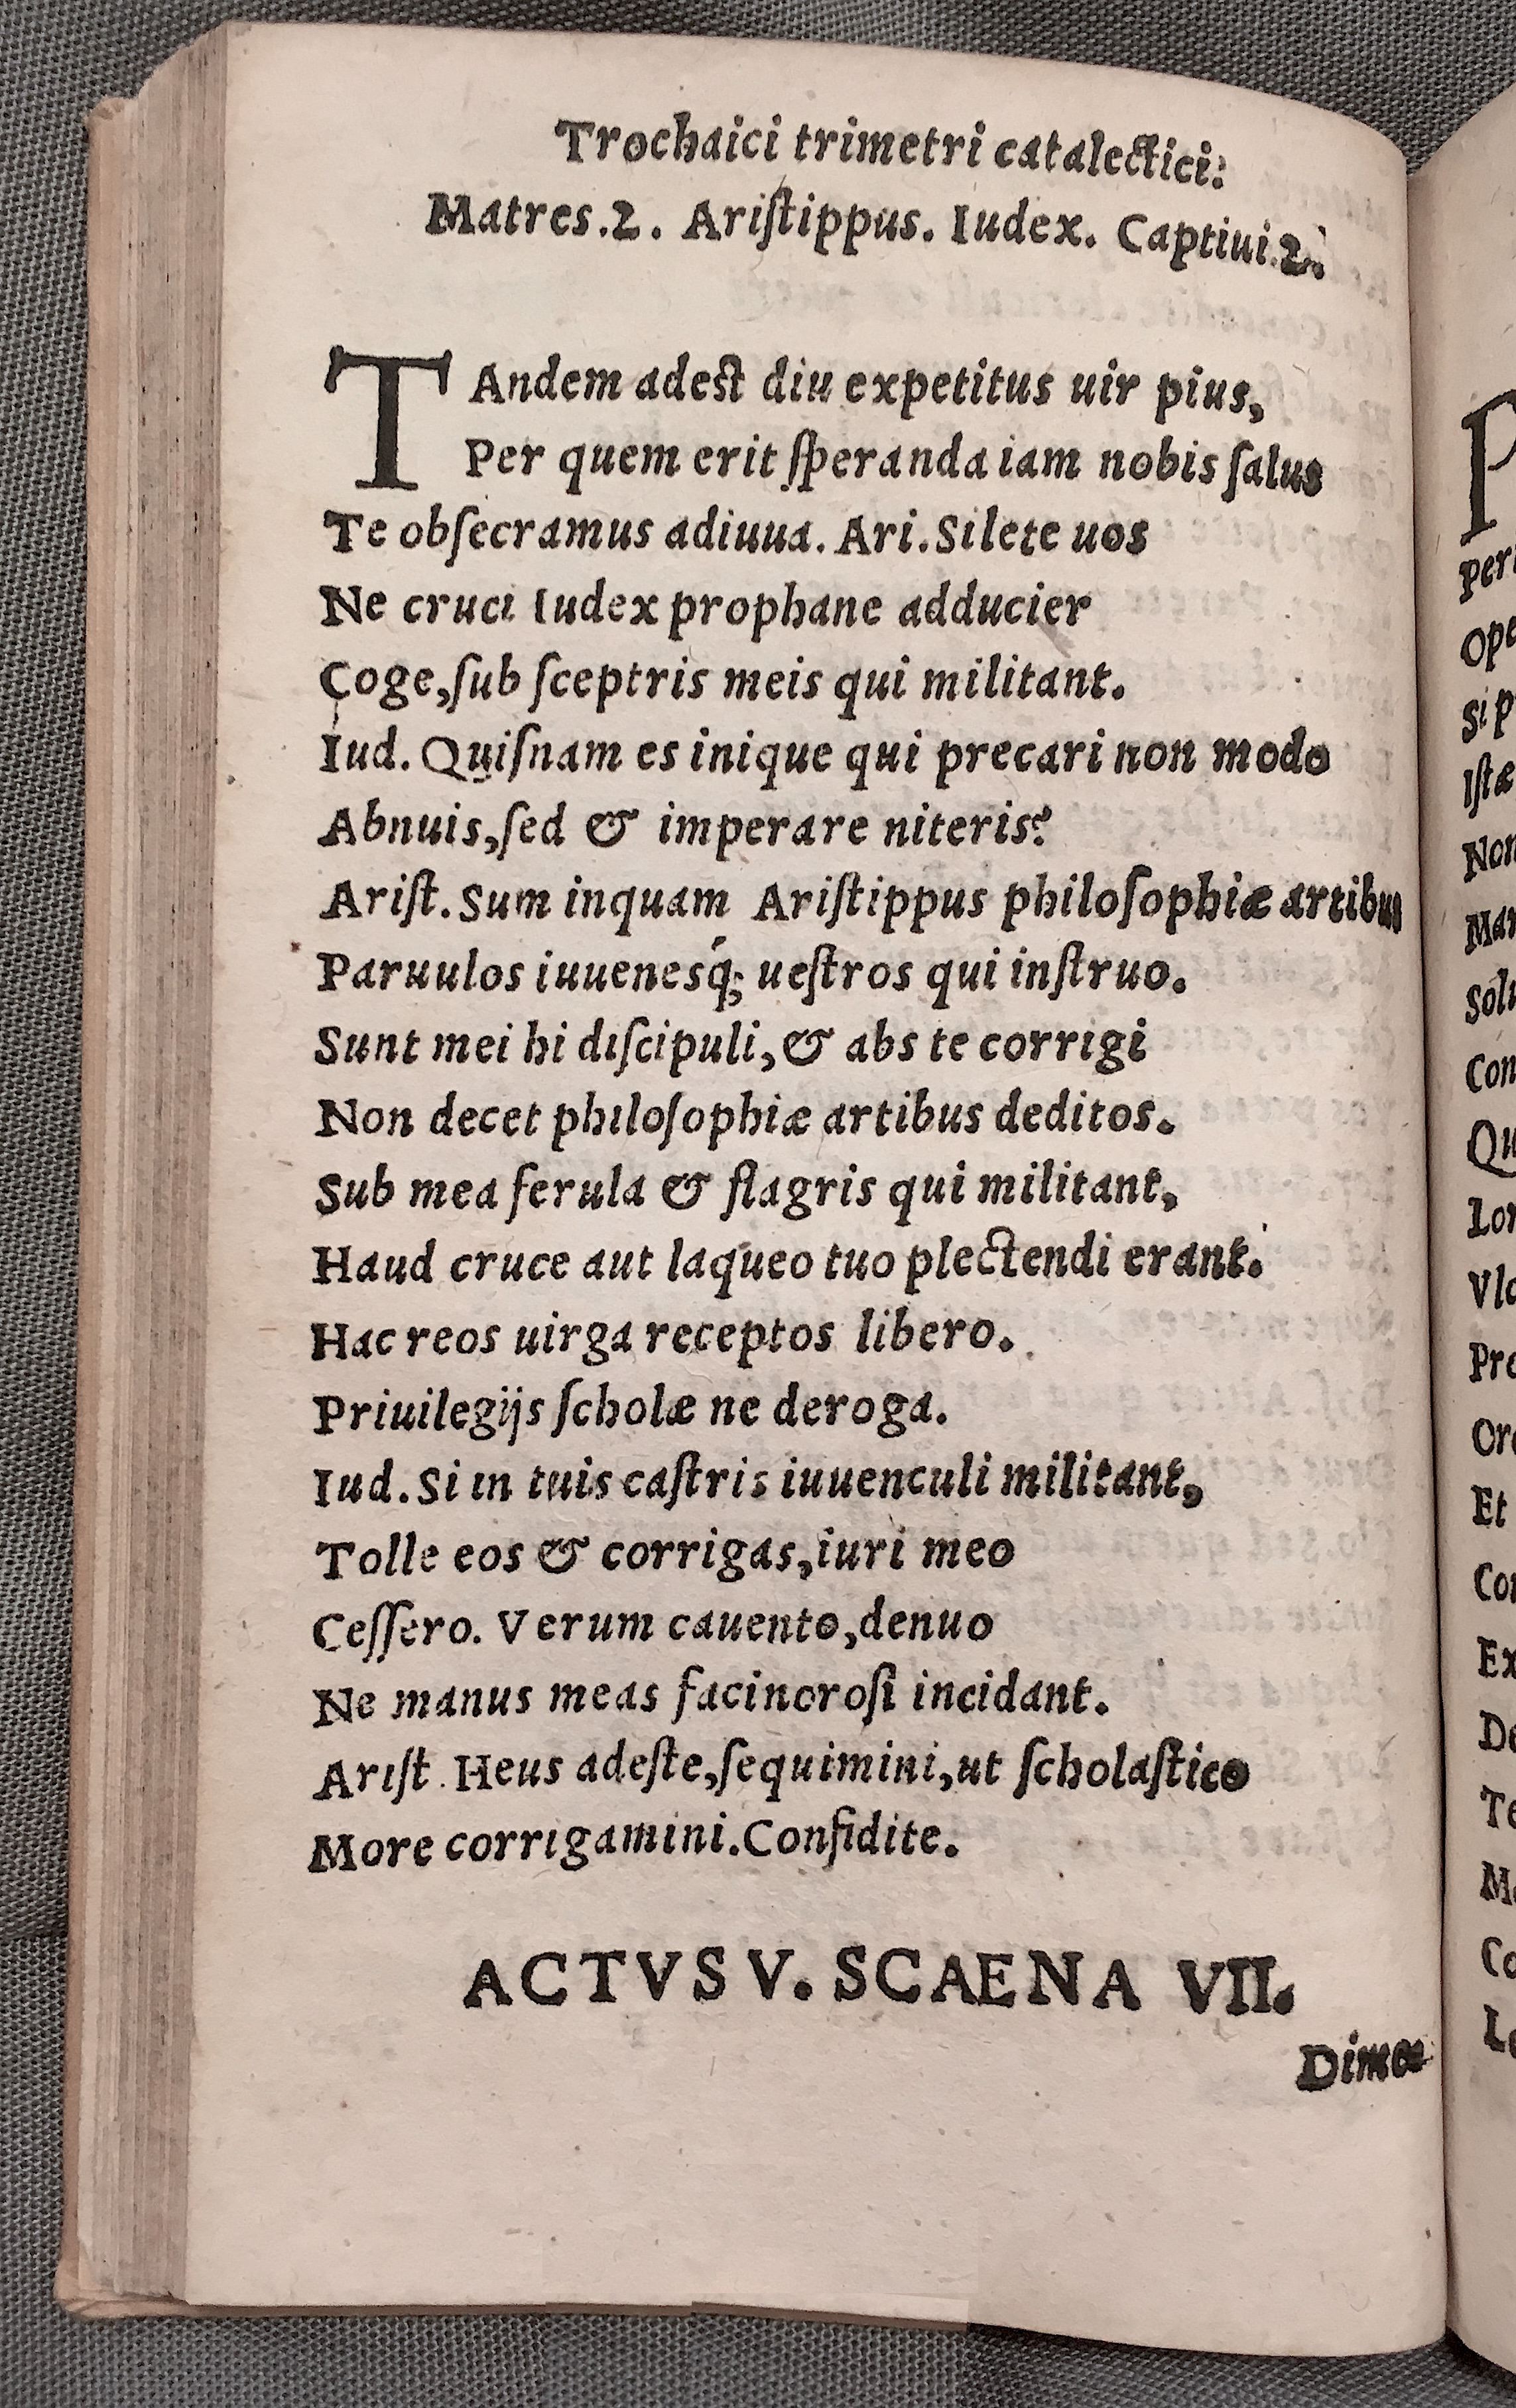 Trochaici trimetri catalectici:
Matres.2. Ariſtippus. Iudex. Captiui.2.
TAndem adest diu expetitus uir pius,
Per quem erit ſperanda iam nobis ſalus
Te obſecramus adiuua. Ari. Silete uos
Ne cruci Iudex prophane adducier
Coge,ſub ſceptris meis qui militant.
Iud. Quiſnam es inique qui precari non modo
Abnuis,ſed & imperare niteris?
Ariſt. Sum inquam Ariſtippus philoſophiæ artibus
Paruulos iuuenesq́; ueſtros qui inſtruo.
Sunt mei hi diſcipuli,& abs te corrigi
Non decet philoſophiæ artibus deditos.
Sub mea ferula & flagris qui militant,
Haud cruce aut laqueo tuo plectendi erant.
Hac reos uirga receptos libero.
Priuilegijs ſcholæ ne deroga.
Iud. Si in tuis caſtris iuuenculi militant,
Tolle eos & corrigas,iuri meo
Ceſſero. Verum cauento,denuo
Ne manus meas facinoroſi incidant.
Ariſt. Heus adeſte,ſequimini,ut ſcholaſtico
More corrigamini. Confidite.
ACTVS V. SCAENA VII.
P
peri
Ope
Si p
Iſtæ
Non
Mar
Solu
Con
Qu
Lor
Vlc
Pro
Et
Ex
De
Te